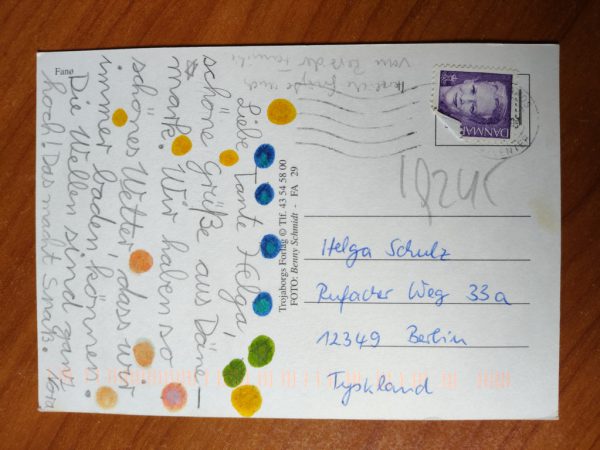 Fanø
Liebe Tante Helga,
schöne grüße aus Däne-
mark. Wir haben so
schönes Wetter, dass wir
immer baden können.
Die Wellen sind ganz
hoch! Das macht Spaß.
Grüße auch
vom Rest der Familie
Trojaborgs Forlag © Tlf. 43 54 58 00
FOTO: Benny Schmidt - FA 29
DANMAR
Helga Schulz
Rufacher Weg 33a
12349 Berlin
Tyskland